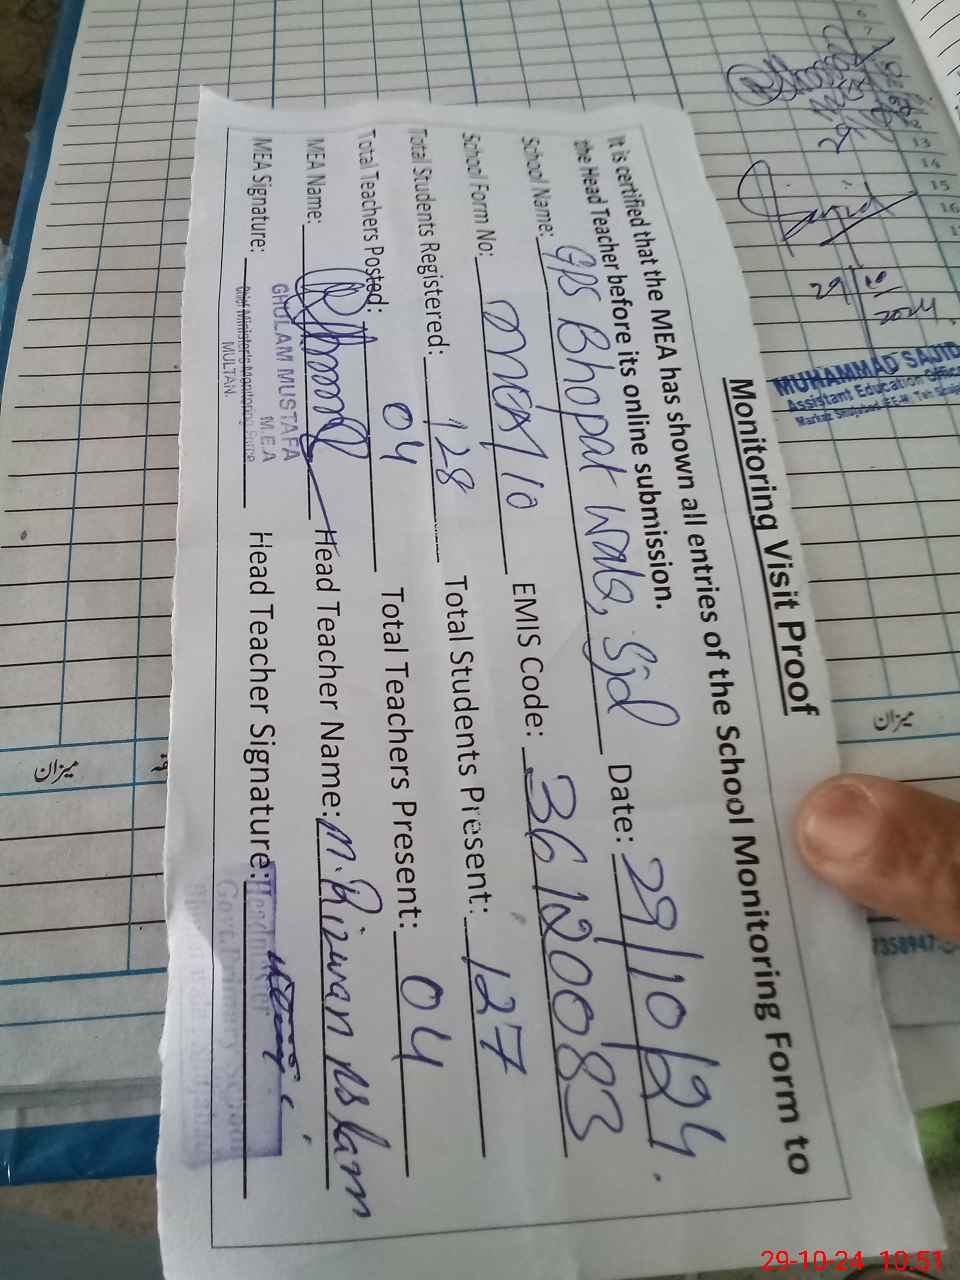 Monitoring Visit Proof
It is certified that the MEA has shown all entries of the School Monitoring Form to
the Head Teacher before its online submission.
School Name: GPS Bhopat wala, Sjd Date: 29/10/24.
School Form No: EMIS Code: 36120083
Total Students Registered: 128 Total Students Present: 127
Total Teachers Posted: 04 Total Teachers Present: 04
MEA Name: Head Teacher Name: M. Rizwan Aslam
MEA Signature: Head Teacher Signature:
GHULAM MUSTAFA
M.E.A
Chief Minister's Monitoring Force
MULTAN.
Govt. Primary School
MUHAMMAD SAJID
Assistant Education Office
13
14
15
16
میزان
میزان
7358947
29-10-24 10:51